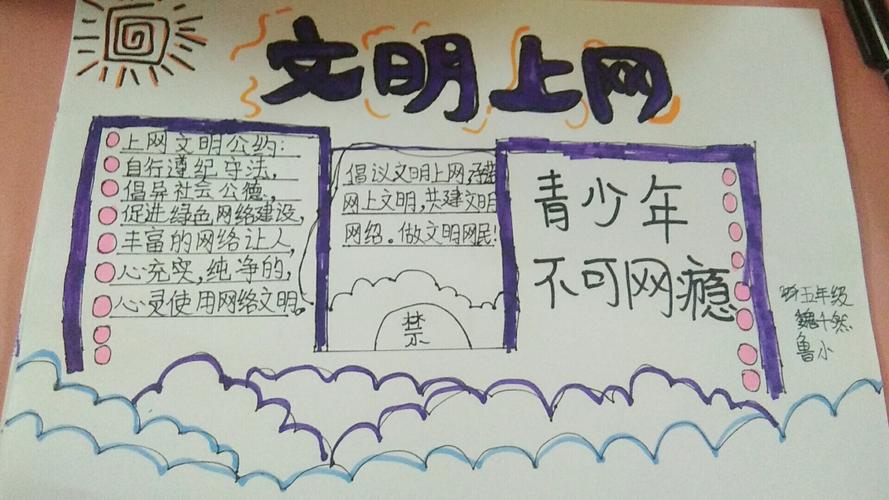 文明上网
上网文明公约:
自行遵纪守法,
倡导社会公德,
促进绿色网络建设,
丰富的网络让人,
心充实,纯净的,
心灵使用网络文明。
倡议文明上网,
网上文明,共建文明
网络。做文明网民!
禁
青少年
不可网瘾
五年级
鲁小